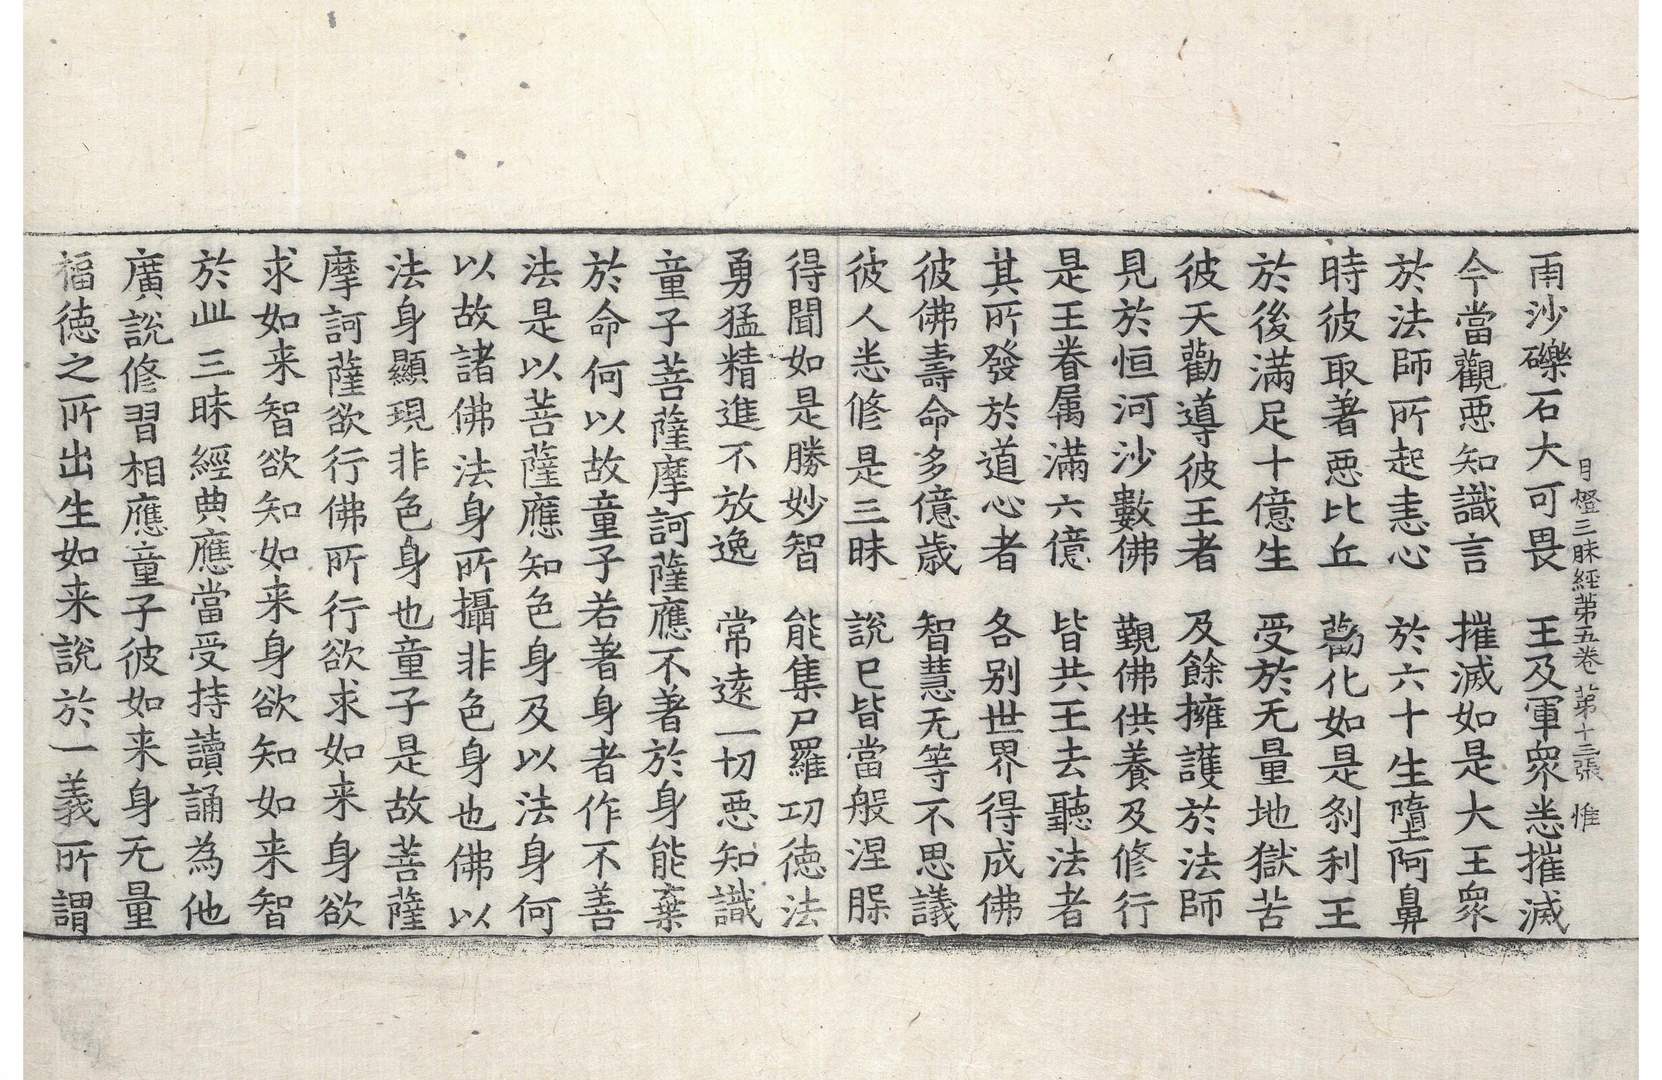 月燈三昧經第五卷 第十三張 惟
雨沙礫石大可畏 王及軍衆悉摧滅
今當觀惡知識言 摧滅如是大王衆
於法師所起恚心 於六十生墮阿鼻
時彼取著惡比丘 勸化如是刹利王
於後滿足十億生 受於无量地獄苦
彼天勸導彼王者 及餘擁護於法師
見於恒河沙數佛 覲佛供養及修行
是王眷属滿六億 皆共王去聽法者
其所發於道心者 各别世界得成佛
彼佛壽命多億歳 智慧无等不思議
彼人悉修是三昧 說已皆當般涅槃
得聞如是勝妙智 能集尸羅㓛徳法
勇猛精進不放逸 常遠一切惡知識
童子菩薩摩訶薩應不著於身能棄
於命何以故童子若著身者作不善
法是以菩薩應知色身及以法身何
以故諸佛法身所攝非色身也佛以
法身顯現非色身也童子是故菩薩
摩訶薩欲行佛所行欲求如来身欲
求如来智欲知如来身欲知如来智
於此三昧經典應當受持讀誦為他
廣說修習相應童子彼如来身无量
福徳之所出生如来說於一義所謂